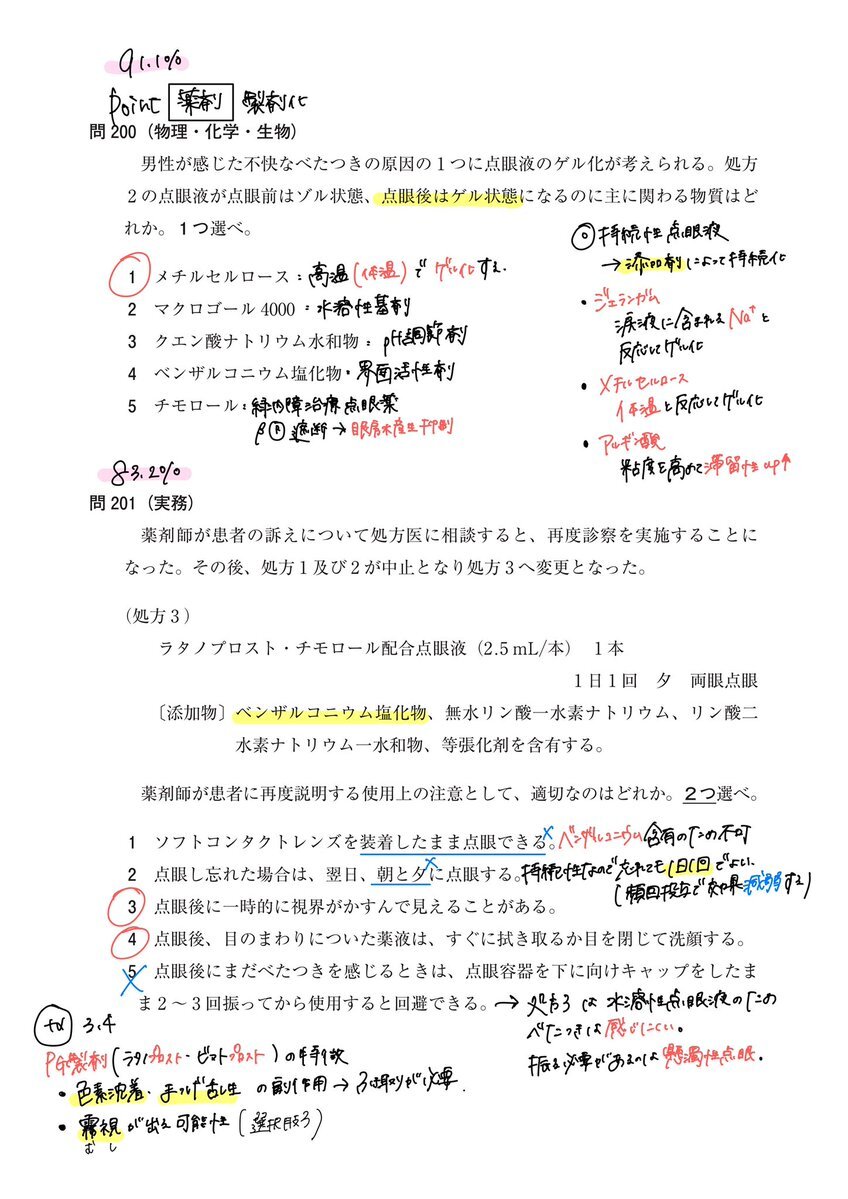 91.1%
Point 薬剤 製剤化
問200（物理・化学・生物）
男性が感じた不快なべたつきの原因の１つに点眼液のゲル化が考えられる。処方
２の点眼液が点眼前はゾル状態、点眼後はゲル状態になるのに主に関わる物質はど
れか。１つ選べ。
1 メチルセルロース：高温(体温)でゲル化する.
2 マクロゴール4000：水溶性基剤
3 クエン酸ナトリウム水和物：pH調節剤
4 ベンザルコニウム塩化物・界面活性剤
5 チモロール：緑内障治療点眼薬
β遮断→眼房水産生抑制
◎持続性点眼液
→添加剤によって持続化
・ジェランガム
涙液に含まれるNa⁺と
反応してゲル化
・メチルセルロース
体温と反応してゲル化
・アルギン酸
粘度を高めて滞留性up↑
83.2%
問201（実務）
薬剤師が患者の訴えについて処方医に相談すると、再度診察を実施することに
なった。その後、処方１及び２が中止となり処方３へ変更となった。
（処方３）
ラタノプロスト・チモロール配合点眼液（2.5 mL/本） １本
１日１回 夕 両眼点眼
〔添加物〕ベンザルコニウム塩化物、無水リン酸一水素ナトリウム、リン酸二
水素ナトリウム一水和物、等張化剤を含有する。
薬剤師が患者に再度説明する使用上の注意として、適切なのはどれか。２つ選べ。
1 ソフトコンタクトレンズを装着したまま点眼できる。× ベンザルコニウム含有のため不可
2 点眼し忘れた場合は、翌日、朝と夕に点眼する。× 持続性なので忘れても1日1回でよい.
(頻回投与で効果減弱する)
3 点眼後に一時的に視界がかすんで見えることがある。
4 点眼後、目のまわりについた薬液は、すぐに拭き取るか目を閉じて洗顔する。
5 点眼後にまだべたつきを感じるときは、点眼容器を下に向けキャップをしたま
ま２〜３回振ってから使用すると回避できる。→処方3は水溶性点眼液のため
べたつきは感じにくい。
振る必要があるのは懸濁性点眼.
3.4
PG製剤(ラタノプロスト・ビマトプロスト)の特徴
・色素沈着・まつげ多毛の副作用→ふき取りが必要.
・霧視が出る可能性(選択肢3)
むし